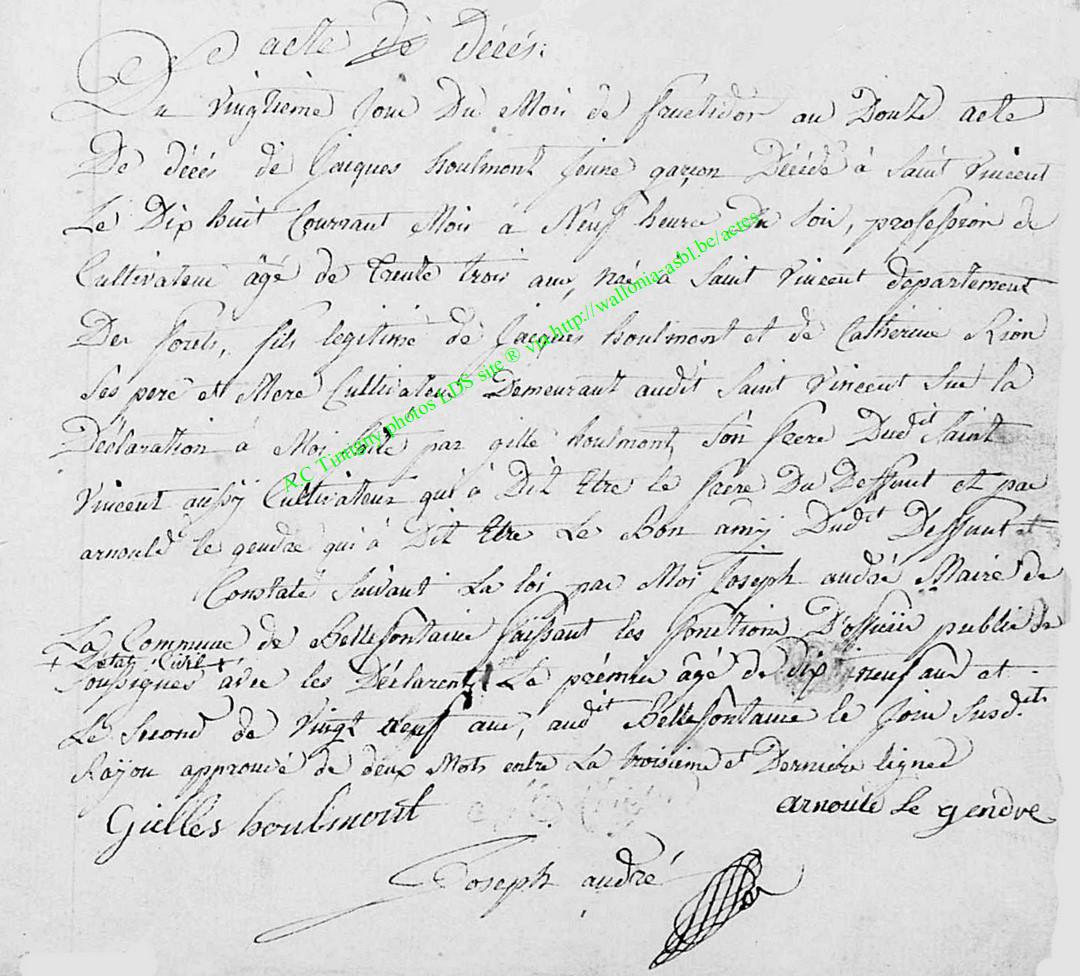 acte de décés.
Du vingtieme Jour Du Mois de fructidor an Douze acte
De décés de Jacques houlmont jeune garçon Décédé à Saint Vincent
Le Dix huit Courrant Mois à Neuf heure du soir, profession de
Cultivateur âgé de trente trois ans, né à Saint Vincent département
Des forets, fils legitime de Jacques houlmont et de Catherine Rion
Ses pere et Mere Cultivateur Demeurant audit Saint Vincent Sur la
Déclaration à Moi faite par gille houlmont, son frere Dudit Saint
Vincent aussy Cultivateur qui à Dit Etre le frere Du Deffunt et par
arnould le gendre qui à Dit Etre Le Bon amy Dudit Deffunt et
Constaté Suivant La loi par Moi Joseph andré Maire de
La Commune de Bellefontaine faissant les fonctions D'officier public de
+ L'etat Civil +
Soussignés avec les Déclarents Le prémier âgé de dix neuf ans et
Le Second de Vingt neuf ans, audit Bellefontaine le Jour Susdits
Rayou approuvé de deux Mots entre La troisieme et Derniere lignes
Gielles houlmont
arnoule le gendre
Joseph andré
A.C Tintigny photos EDS site ® via http://wallonia-asbl.be/actes